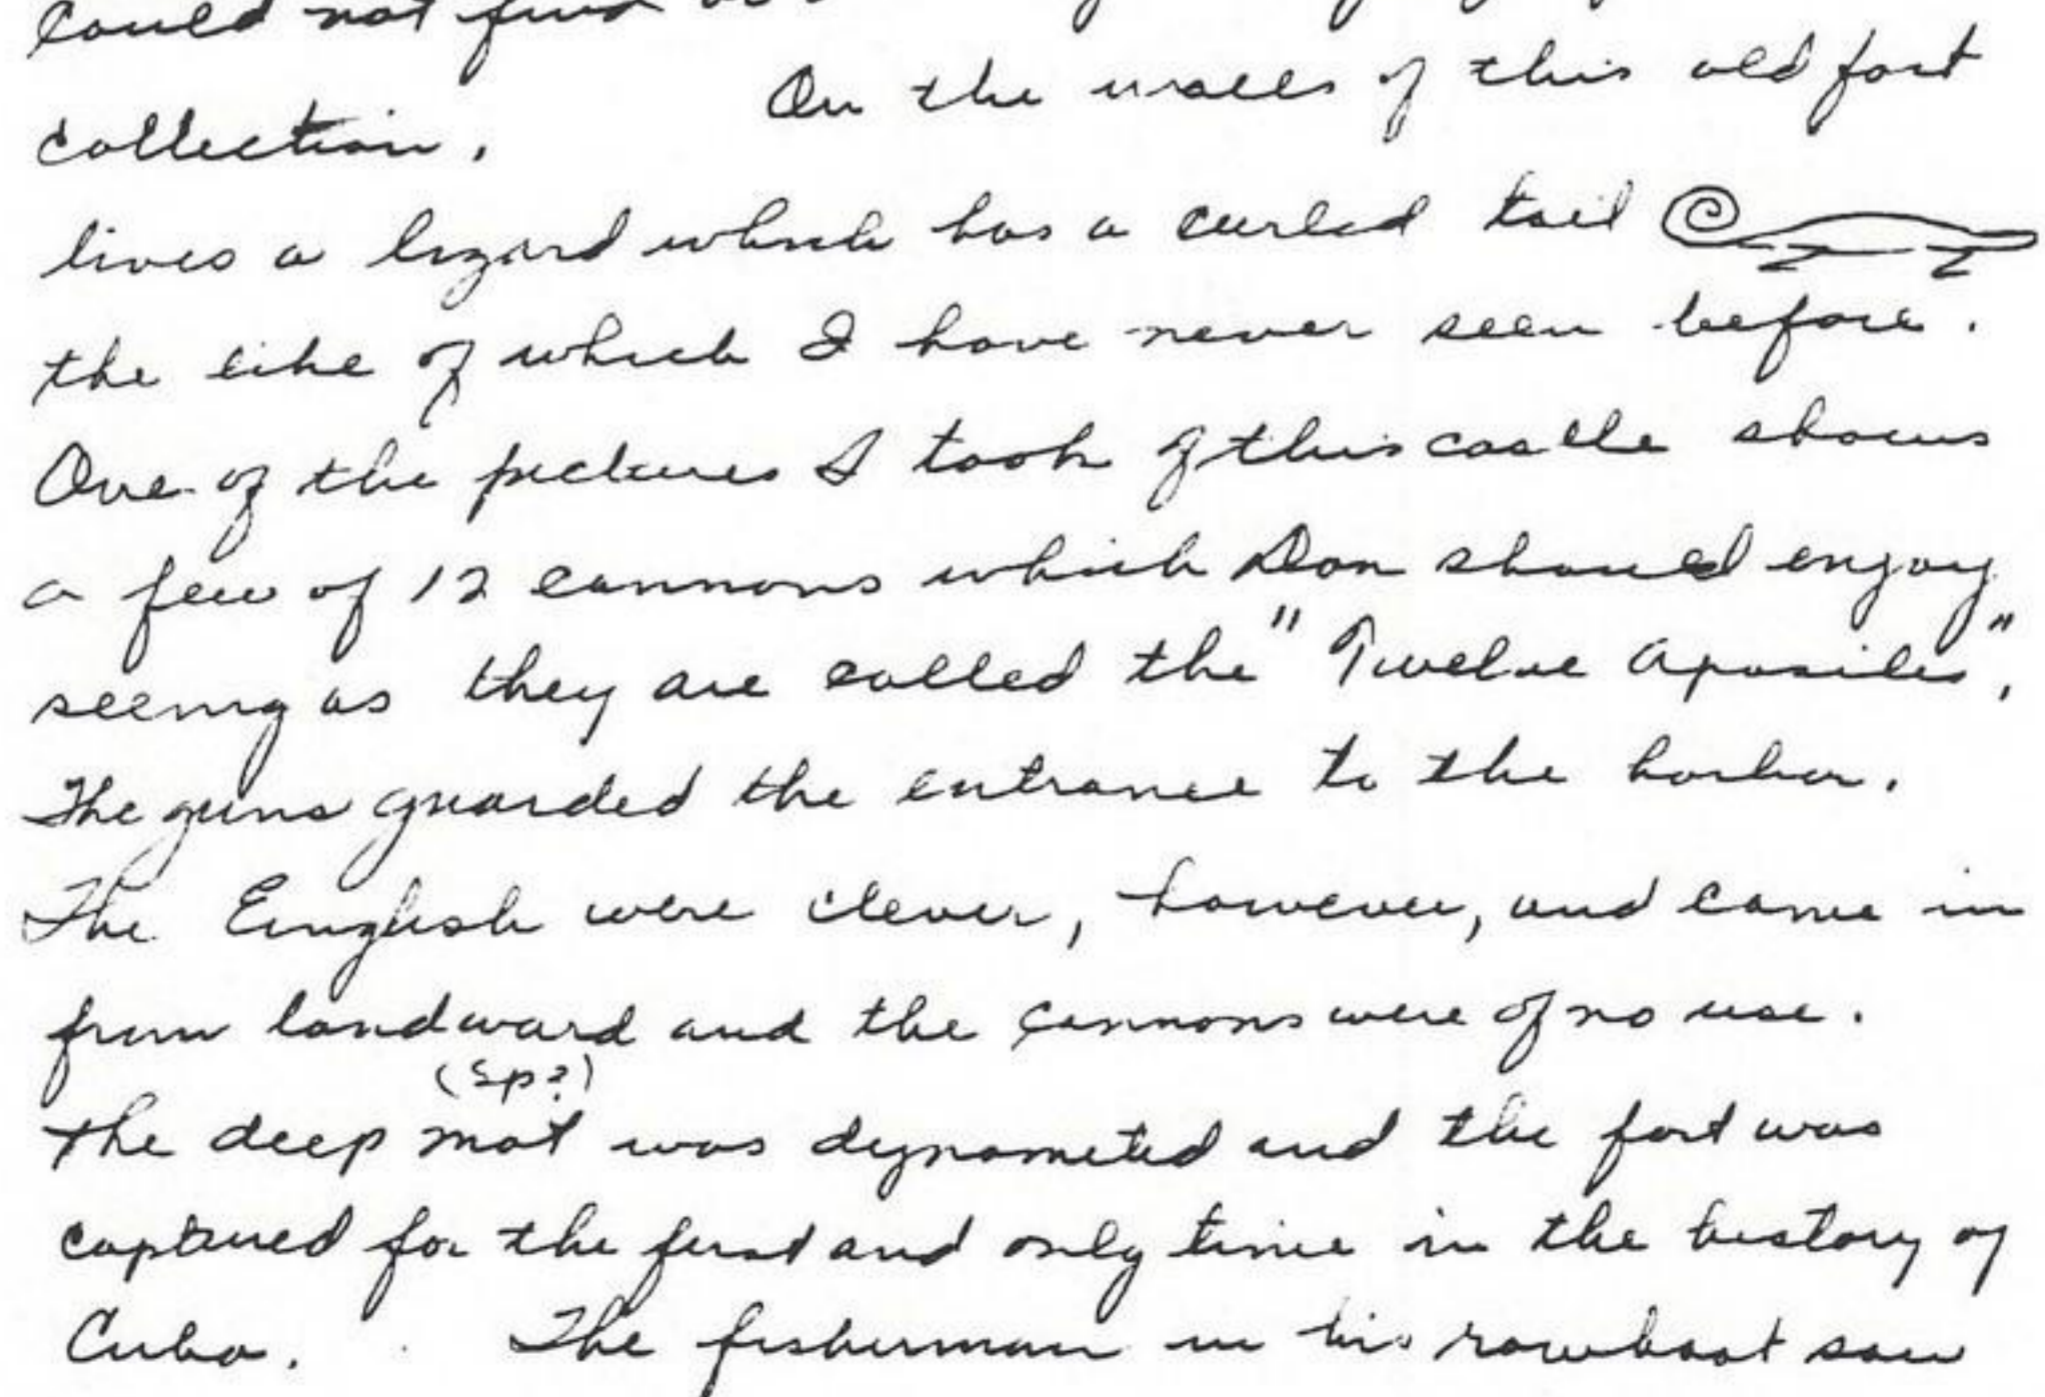 could not find
On the walls of this old fort
collection.
lives a lizard which has a curled tail
the like of which I have never seen before.
One of the pictures I took of this castle shows
a few of 12 cannons which Don should enjoy
seeing as they are called the "Twelve Apostles",
The guns guarded the entrance to the harbor.
The English were clever, however, and came in
from landward and the cannons were of no use.
(Sp?)
The deep mot was dynamited and the fort was
captured for the first and only time in the history of
Cuba. The fisherman in his rowboat saw